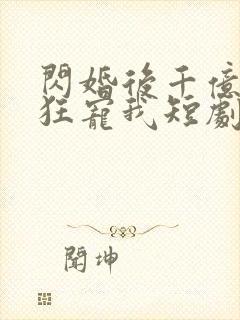 閃婚後千億
狂寵我短劇
聞坤